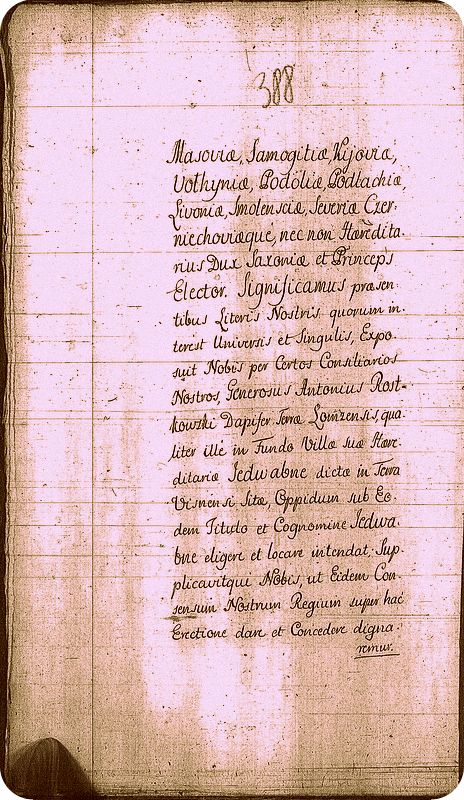 388
Masoviæ, Samogitiæ, Kijoviæ,
Volhyniæ, Podoliæ, Podlachiæ,
Livoniæ, Smolensciæ, Severiæ Czer-
niechoviæque, nec non Hæredita
rius Dux Saxoniæ et Princeps
Elector. Significamus præsen-
tibus Literis Nostris quorum in-
terest Universis et Singulis, Expo-
suit Nobis per Certos Consiliarios
Nostros, Generosus Antonius Rost-
kowski Dapifer Terræ Lomzensis, qua-
liter ille in Fundo Villæ suæ Hære-
ditariæ Jedwabne dictæ in Terra
Visnensi Sitæ, Oppidum sub Eo-
dem Titulo et Cognomine Jedwa-
bne eligere et locare intendat, Sup-
plicavitqui Nobis, ut Eidem Con
sensum Nostrum Regium super hac
Erectione dare et Concedere digna-
remur.